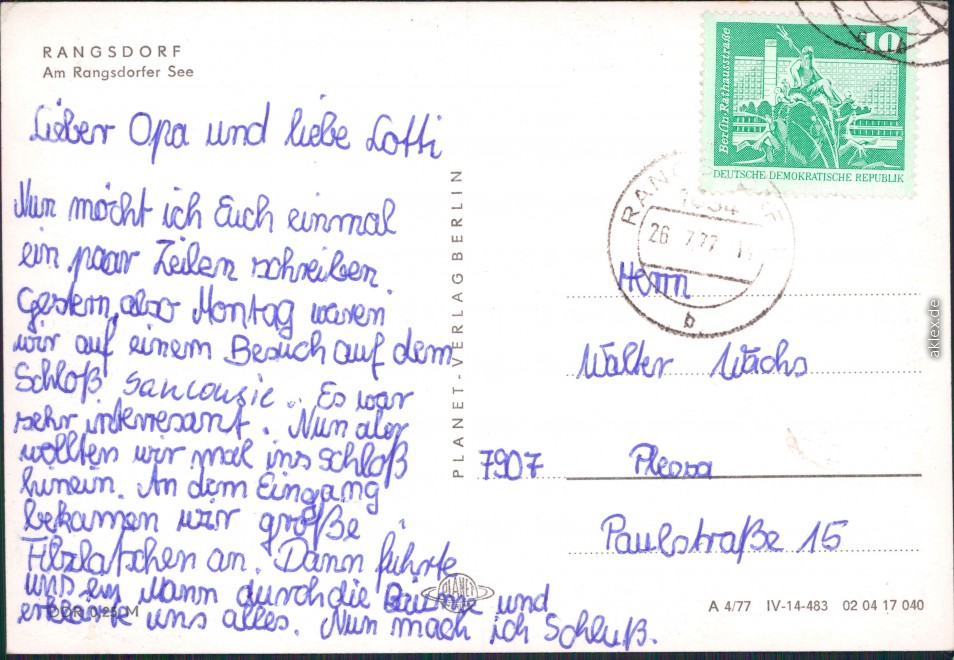 RANGSDORF
Am Rangsdorfer See
Lieber Opa und liebe Lotti
Nun möcht ich Euch einmal
ein paar Zeilen schreiben.
Gestern, also Montag waren
wir auf einem Besuch auf dem
Schloß Sancousie. Es war
sehr interresant. Nun aber
wollten wir mal ins Schloß
hinein. An dem Eingang
bekamen wir große
Filzlatschen an. Dann führte
uns ein Mann durch die Räume und
erklärte uns alles. Nun mach ich Schluß.
DDR 0,25 M
PLANET-VERLAG BERLIN
PLANET
10
Berlin-Rathausstraße
DEUTSCHE DEMOKRATISCHE REPUBLIK
1634
26.7.77
b
Herrn
Walter Wachs
7907 Plessa
Paulstraße 15
A 4/77 IV-14-483 02 04 17 040
aklex.de